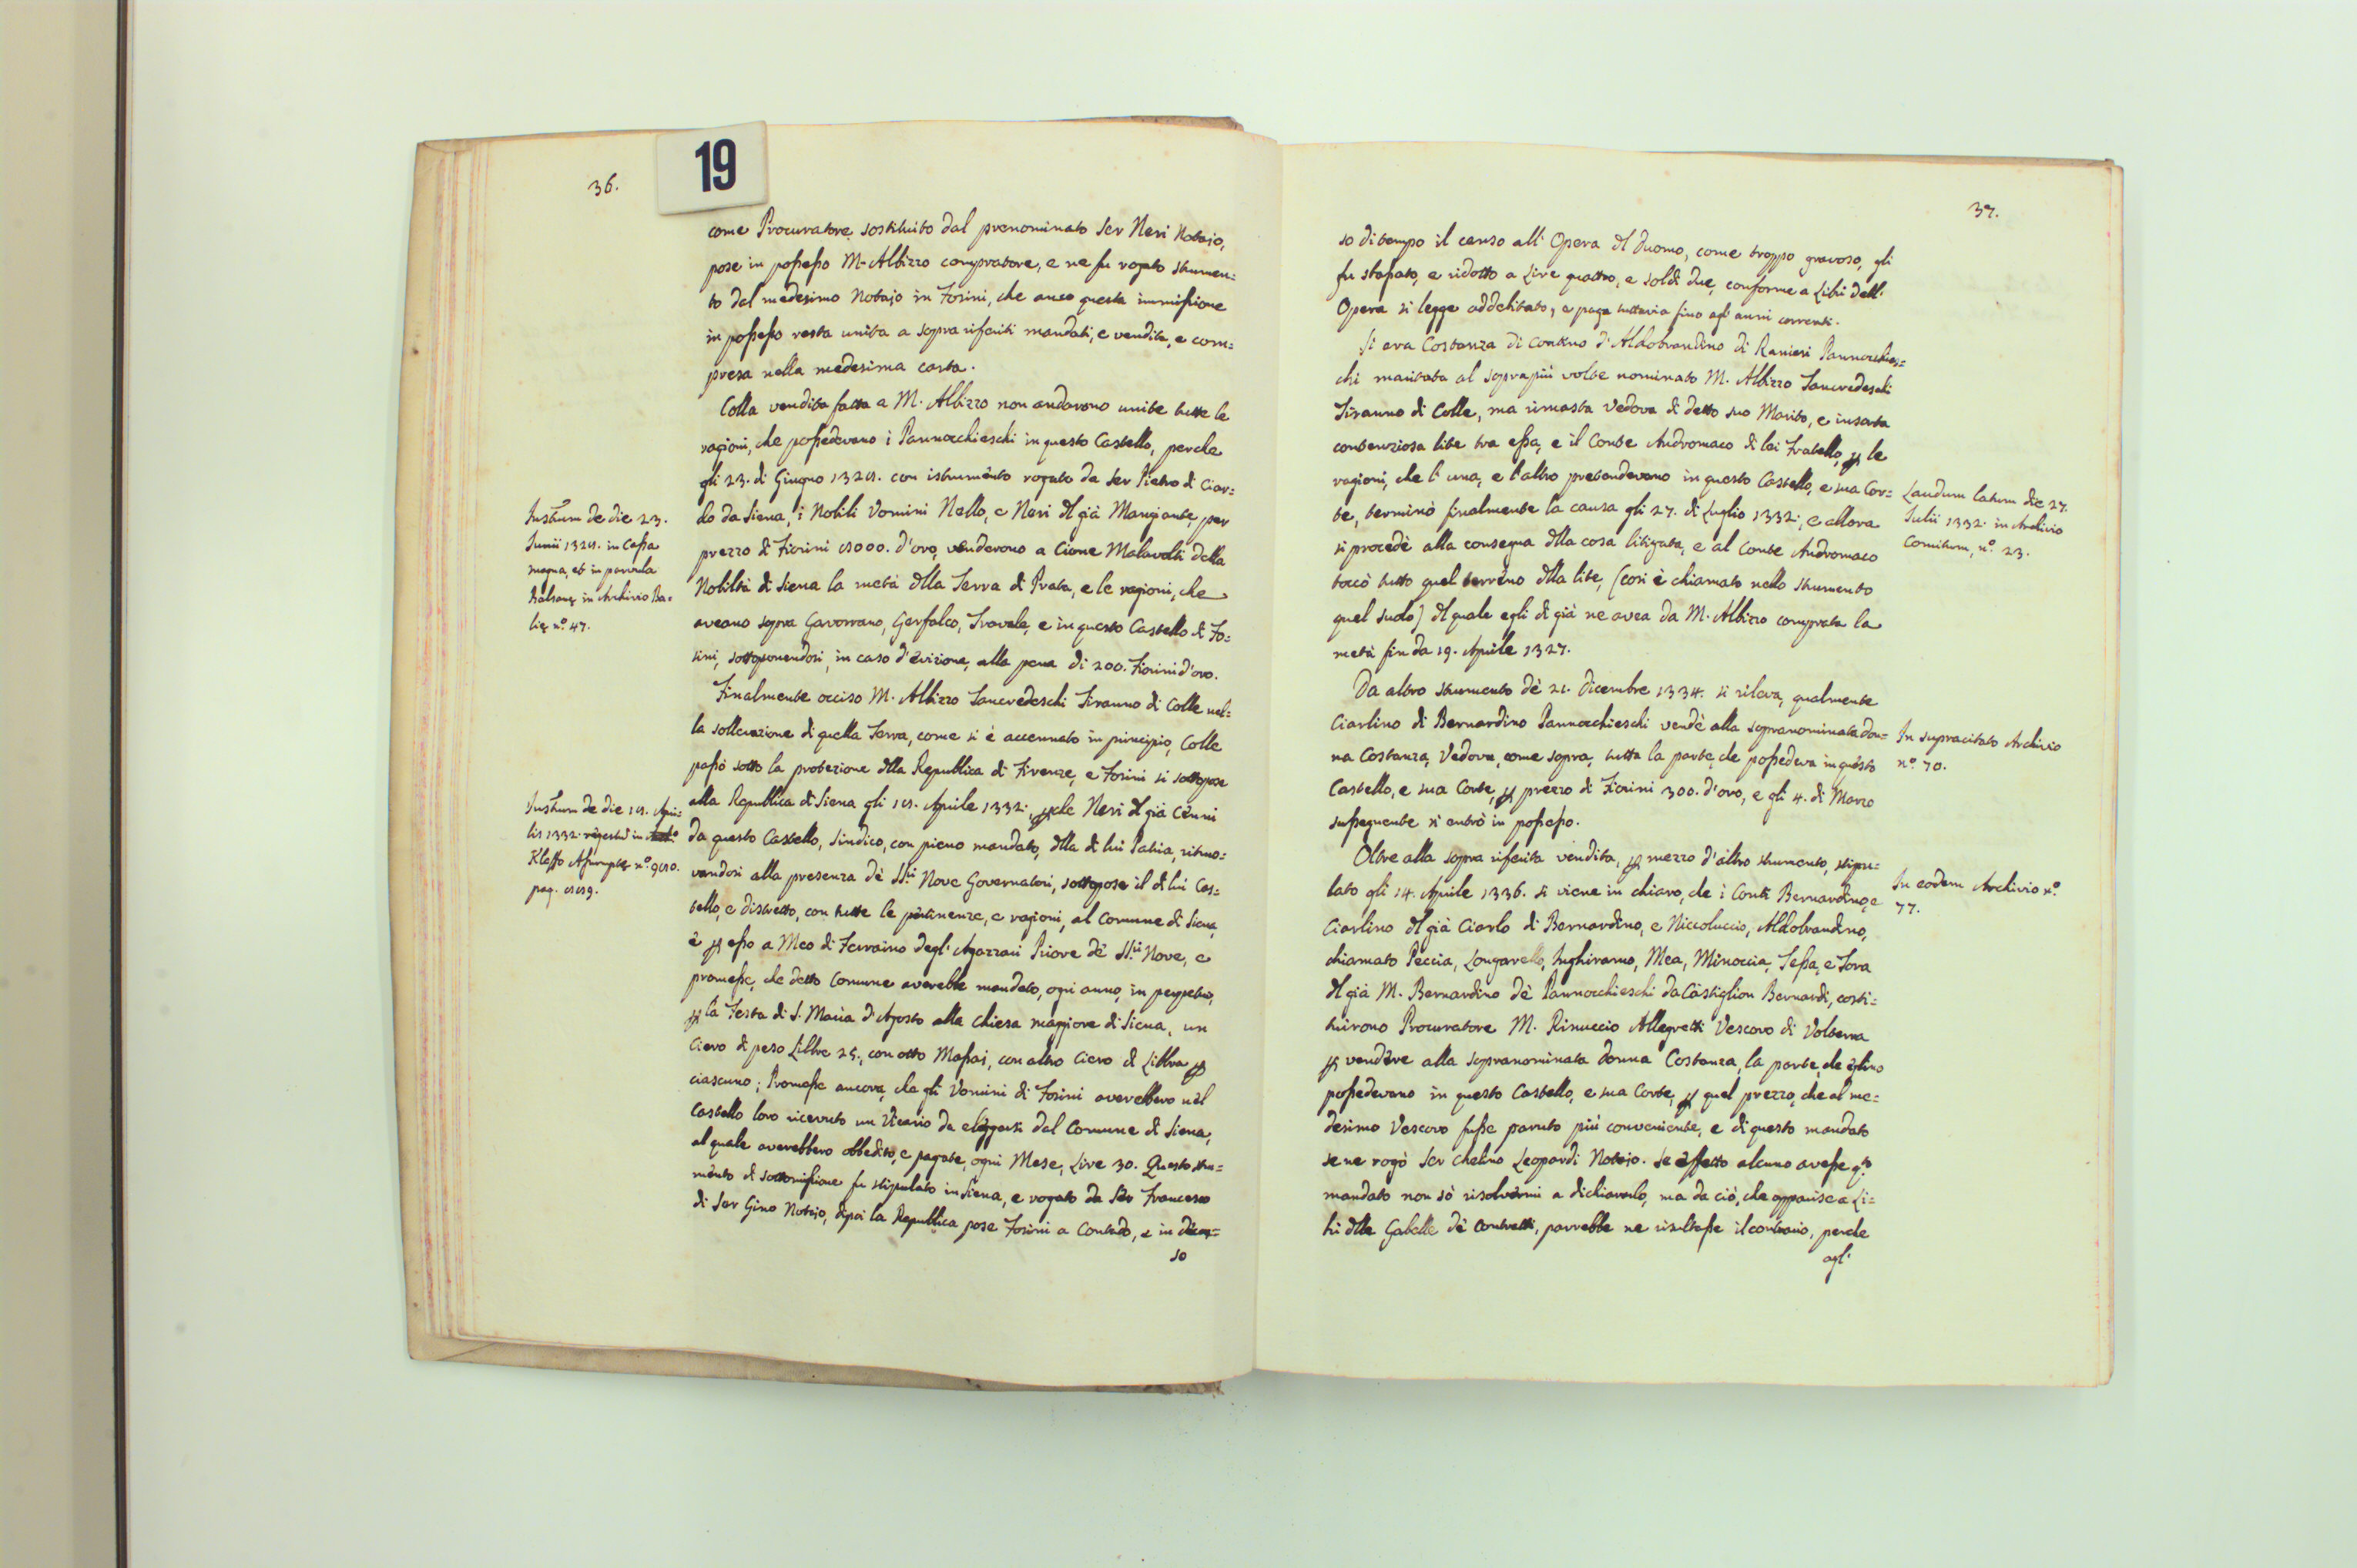 36.
19
come Procuratore sostituito dal prenominato Ser Neri Notajo,
pose in possesso M. Albizzo compratore, e ne fu rogato strumen=
to dal medesimo Notajo in Fosini, che anco questa immissione
in possesso resta unita a sopra riferiti mandati, e vendita, e com=
presa nella medesima carta.
Colla vendita fatta a M. Albizzo non andarono unite tutte le
ragioni, che possedevano i Pannocchieschi in questo Castello, perche
gli 23. di Giugno con istrumento rogato da Ser Pietro di Ciar=
do da Siena, i Nobili Vomini Nello, e Neri dl già Mangiante, per
prezzo di Fiorini d'oro, venderono a Cione Malavolti della
Nobiltà di Siena la metà dlla Terra di Prata, e le ragioni, che
aveano sopra Gavorrano, Gerfalco, Travale, e in questo Castello di Fo=
sini, sottoponendosi, in caso d'evizione, alla pena di 200. Fiorini d'oro.
Finalmente occiso M. Albizzo Tancredeschi Tiranno di Colle nel=
la sollevazione di quella Terra, come si è accennato in principio, Colle
passò sotto la protezione dlla Republica di Firenze, e Fosini si sottopose
alla Republica di Siena gli Aprile 1332. pche Neri dl già Cenni
da questo Castello, Sindico, con pieno mandato, dlla di lui Patria, ritro=
vandosi alla presenza dè SS.ri Nove Governatori, sottopose il di lui Cas=
tello, e distretto, con tutte le ptinenze, e ragioni, al Comune di Siena,
è p esso a Meo di Ferraino degl' Agazzari Priore dè SS.ri Nove, e
promesse, che detto Comune averebbe mandato, ogni anno, in perpetuo,
p la Festa di S. Maria d'Agosto alla Chiesa maggiore di Siena, un
Ciero di peso Libbre 25., con otto Massai, con altro Ciero di Libbra p
ciascuno; Promesse ancora, che gli Vomini di Fosini averebbero nel
Castello loro ricevuto un Vicario da eleggersi dal Comune di Siena,
al quale averebbero obbedito, e pagate, ogni Mese, Lire 30. Questo stru=
mento di sottomissione fu stipulato in Siena, e rogato da Ser Francesco
di Ser Gino Notajo, dipoi la Republica pose Fosini a Contado, e in
so
Instrum de die 23.
Junii in Cassa
magna, et in parvula
Balzane in Archivio Ba=
lie n.o 47.
Instrum de die Apri=
lis 1332. in
Kleffo Assumpte n.o
pag.
37.
so di tempo il censo all' Opera dl Duomo, come troppo gravoso, gli
fu sbassato, e ridotto a Lire quattro, e soldi due, conforme a Libri dell'
Opera si legge addebitato, e paga tuttavia fino agl' anni correnti.
Si era Costanza di d'Aldobrandino di Ranieri Pannocchies=
chi maritata al sopra più volte nominato M. Albizzo Tancredeschi
Tiranno di Colle, ma rimasta Vedova di detto suo Marito, e insorta
contenziosa lite tra essa, e il Conte Andromaco di lei Fratello, p le
ragioni, che l'una, e l'altro pretendevano in questo Castello, e sua Cor=
te, terminò finalmente la causa gli 27. di Luglio 1332., e allora
si procedè alla consegna dlla cosa litigata, e al Conte Andromaco
toccò tutto quel terreno dlla lite, (cosi è chiamato nello strumento
quel suolo) dl quale egli di già ne avea da M. Albizzo comprata la
metà fin da 19. Aprile 1327.
Da altro strumento dè 21. Dicembre 1334. si rileva, qualmente
Ciarlino di Bernardino Pannocchieschi vendè alla sopranominata don=
na Costanza, Vedova, come sopra, tutta la parte, che possedeva in questo
Castello, e sua Corte, p prezzo di Fiorini 300. d'oro, e gli 4. di Marzo
susseguente si entrò in possesso.
Oltre alla sopra riferita vendita, p mezzo d'altro strumento, stipu=
lato gli 14. Aprile 1336. si viene in chiaro, che i Conti Bernardino, e
Ciarlino dl già Ciarlo di Bernardino, e Niccoluccio, Aldobrandino,
chiamato Peccia, Longarello, Inghiramo, Mea, Minoccia, Tessa, e Tora
dl già M. Bernardino dè Pannocchieschi da Castiglion Bernardi, costi=
tuirono Procuratore M. Rinuccio Allegretti Vescovo di Volterra
p vendere alla sopranominata Donna Costanza, la parte, che eglino
possedevano in questo Castello, e sua Corte, p quel prezzo, che al me=
desimo Vescovo fusse paruto più conveniente, e di questo mandato
se ne rogò Ser Chelino Leopardi Notajo. Se effetto alcuno avesse q.to
mandato non sò risolvermi a dichiararlo, ma da ciò, che apparisce a Li=
bri dlle Gabelle dè Contratti, parrebbe ne risultasse il contrario, perche
agl'
Laudum latum die 27.
Julii 1332. in Archivio
Comitum, n.o 23.
In supracitato Archivio
n.o 70.
In eodem Archivio n.o
77.